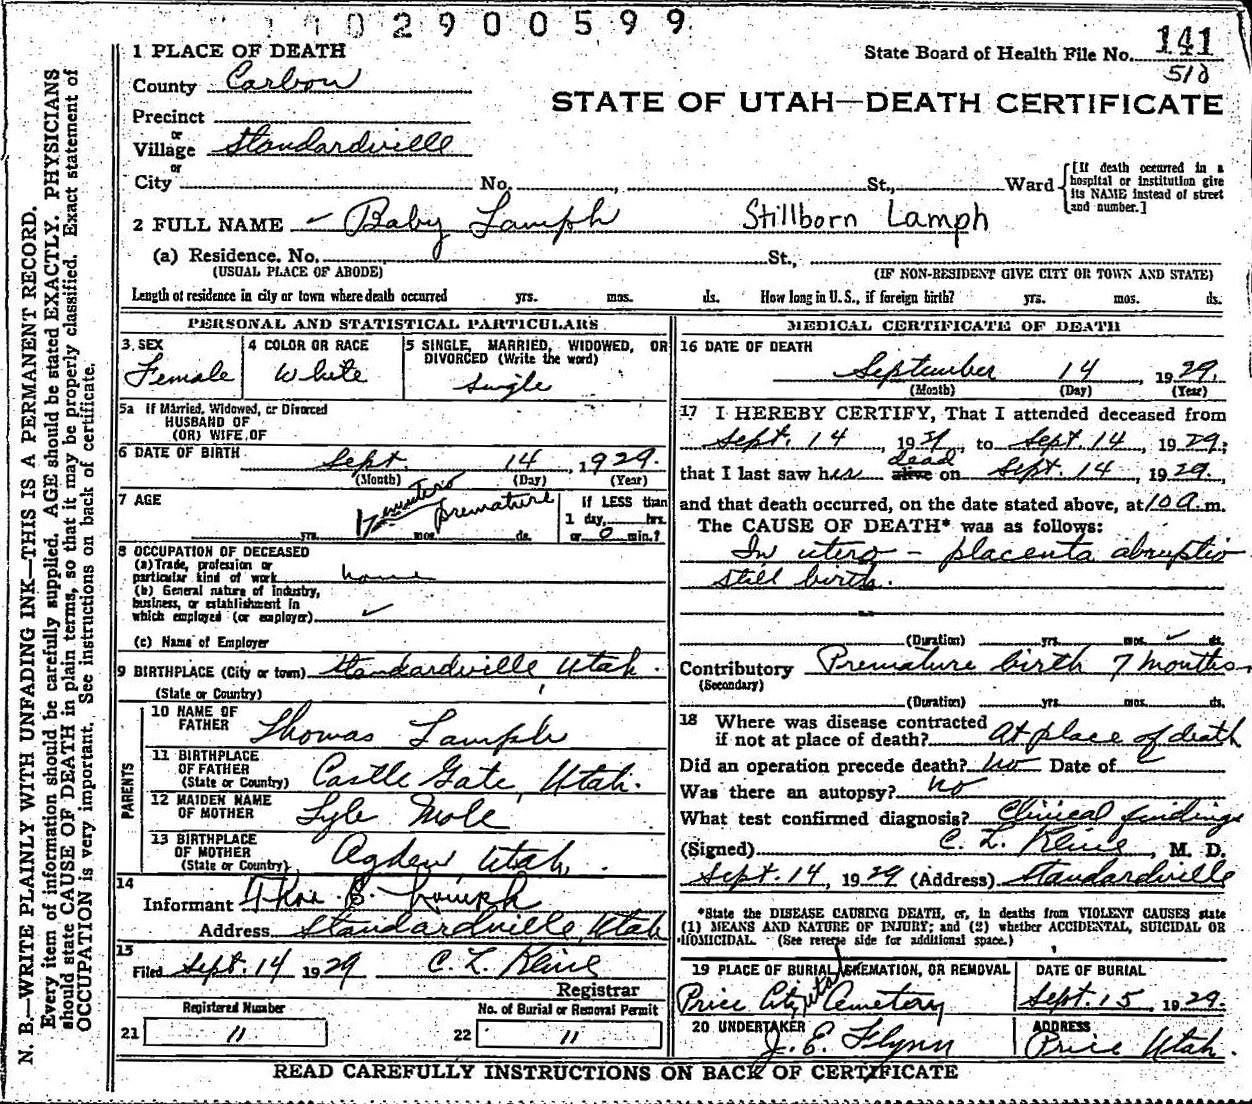 102900599
1 PLACE OF DEATH
State Board of Health File No. 141
510
County Carbon
STATE OF UTAH—DEATH CERTIFICATE
Precinct
or
Village Standardville
or
City No. , St., Ward
[If death occurred in a hospital or institution give its NAME instead of street and number.]
2 FULL NAME Baby Lamph Stillborn Lamph
(a) Residence. No. St.,
(USUAL PLACE OF ABODE) (IF NON-RESIDENT GIVE CITY OR TOWN AND STATE)
Length of residence in city or town where death occurred yrs. mos. ds. How long in U. S., if foreign birth? yrs. mos. ds.
PERSONAL AND STATISTICAL PARTICULARS
3 SEX
Female
4 COLOR OR RACE
White
5 SINGLE, MARRIED, WIDOWED, OR
DIVORCED (Write the word)
Single
5a If Married, Widowed, or Divorced
HUSBAND OF
(OR) WIFE OF
6 DATE OF BIRTH Sept. 14, 1929.
(Month) (Day) (Year)
7 AGE
premature
yrs. mos. ds.
If LESS than
1 day, hrs.
or 0 min.?
8 OCCUPATION OF DECEASED
(a) Trade, profession or
particular kind of work
(b) General nature of industry,
business, or establishment in
which employed (or employer)
(c) Name of Employer
9 BIRTHPLACE (City or town) Standardville Utah.
(State or Country)
PARENTS
10 NAME OF
FATHER Thomas Lamph
11 BIRTHPLACE
OF FATHER
(State or Country) Castle Gate, Utah.
12 MAIDEN NAME
OF MOTHER Lyle Mole
13 BIRTHPLACE
OF MOTHER
(State or Country) Ogden, Utah.
14
Informant Thos. B. Lamph
Address Standardville, Utah
15
Filed Sept. 14 1929 C. L. Kline
Registrar
Registered Number
21 11
No. of Burial or Removal Permit
22 11
MEDICAL CERTIFICATE OF DEATH
16 DATE OF DEATH
September 14, 1929.
(Month) (Day) (Year)
17 I HEREBY CERTIFY, That I attended deceased from
Sept. 14, 1929, to Sept. 14, 1929;
that I last saw her alive dead on Sept. 14, 1929.,
and that death occurred, on the date stated above, at 10 a.m.
The CAUSE OF DEATH* was as follows:
In utero - placenta abruptio
still birth.
(Duration) yrs. mos. ds.
Contributory Premature birth 7 months
(Secondary)
(Duration) yrs. mos. ds.
18 Where was disease contracted
if not at place of death? At place of death
Did an operation precede death? no Date of
Was there an autopsy? no
What test confirmed diagnosis? Clinical findings
(Signed) C. L. Kline, M. D.
Sept. 14, 1929 (Address) Standardville
*State the DISEASE CAUSING DEATH, or, in deaths from VIOLENT CAUSES state
(1) MEANS AND NATURE OF INJURY; and (2) whether ACCIDENTAL, SUICIDAL OR
HOMICIDAL. (See reverse side for additional space.)
19 PLACE OF BURIAL, CREMATION, OR REMOVAL
Price City Utah Cemetery
DATE OF BURIAL
Sept. 15, 1929.
20 UNDERTAKER
J. E. Flynn
ADDRESS
Price Utah.
READ CAREFULLY INSTRUCTIONS ON BACK OF CERTIFICATE
N. B.—WRITE PLAINLY WITH UNFADING INK—THIS IS A PERMANENT RECORD.
Every item of information should be carefully supplied. AGE should be stated EXACTLY. PHYSICIANS
should state CAUSE OF DEATH in plain terms, so that it may be properly classified. Exact statement of
OCCUPATION is very important. See instructions on back of certificate.